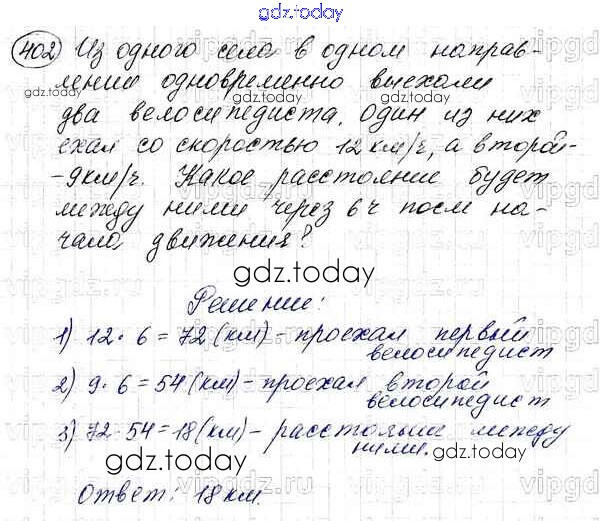 gdz.today
402 Из одного села в одном направ-
лении одновременно выехали
gdz.today
gdz.today
два велосипедиста. Один из них
ехал со скоростью 12 км/ч, а второй-
-9км/ч. Какое расстояние будет
между ними через 6 ч посл на-
чала движения?
gdz.today
Решение:
1) 12 · 6 = 72 (км) - проехал первый
велосипедист
2) 9 · 6 = 54 (км) - проехал второй
велосипедист
3) 72 - 54 = 18 (км) - расстояние между
ними.
gdz.today
gdz.today
Ответ: 18 км.